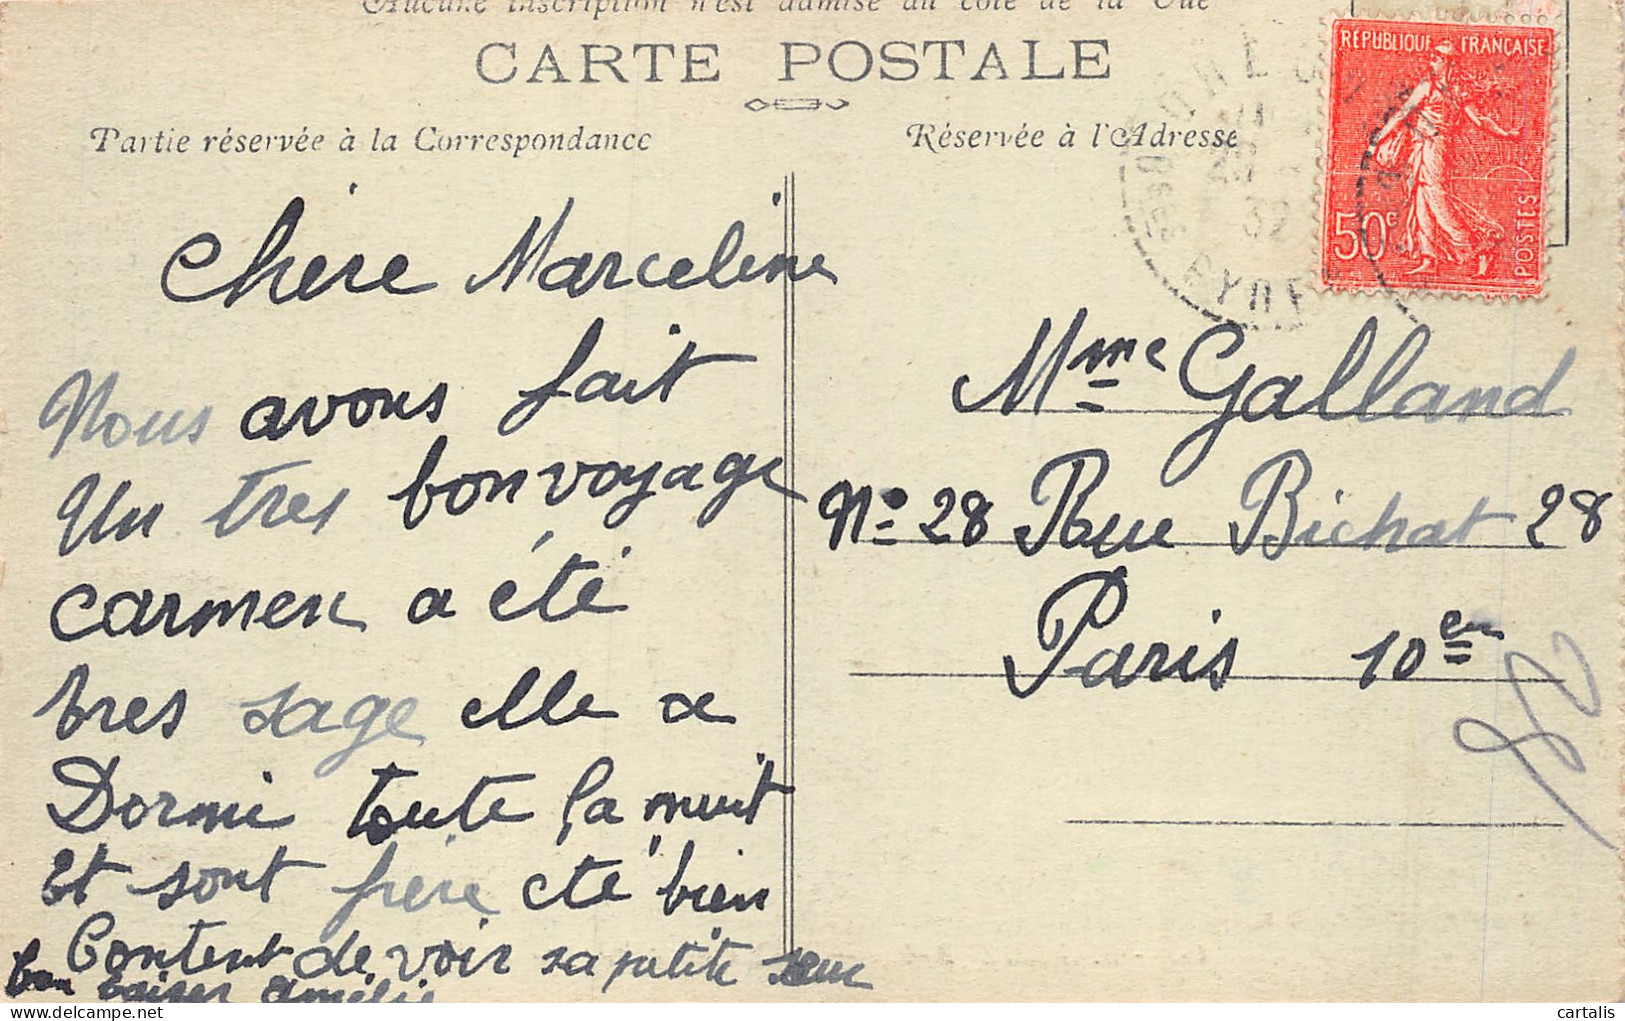 Aucune inscription n'est admise du côté de la Vue
CARTE POSTALE
Partie réservée à la Correspondance
Réservée à l'Adresse
RÉPUBLIQUE FRANÇAISE
50c
POSTES
32
Chère Marceline
Nous avons fait
Un tres bon voyage
Carmen a été
tres sage elle a
Dormi toute la nuit
Et sont frère été bien
Content de voir sa petite seur
bon baiser amélie
Mme Galland
No 28 Rue Bichat 28
Paris 10em
cartalis